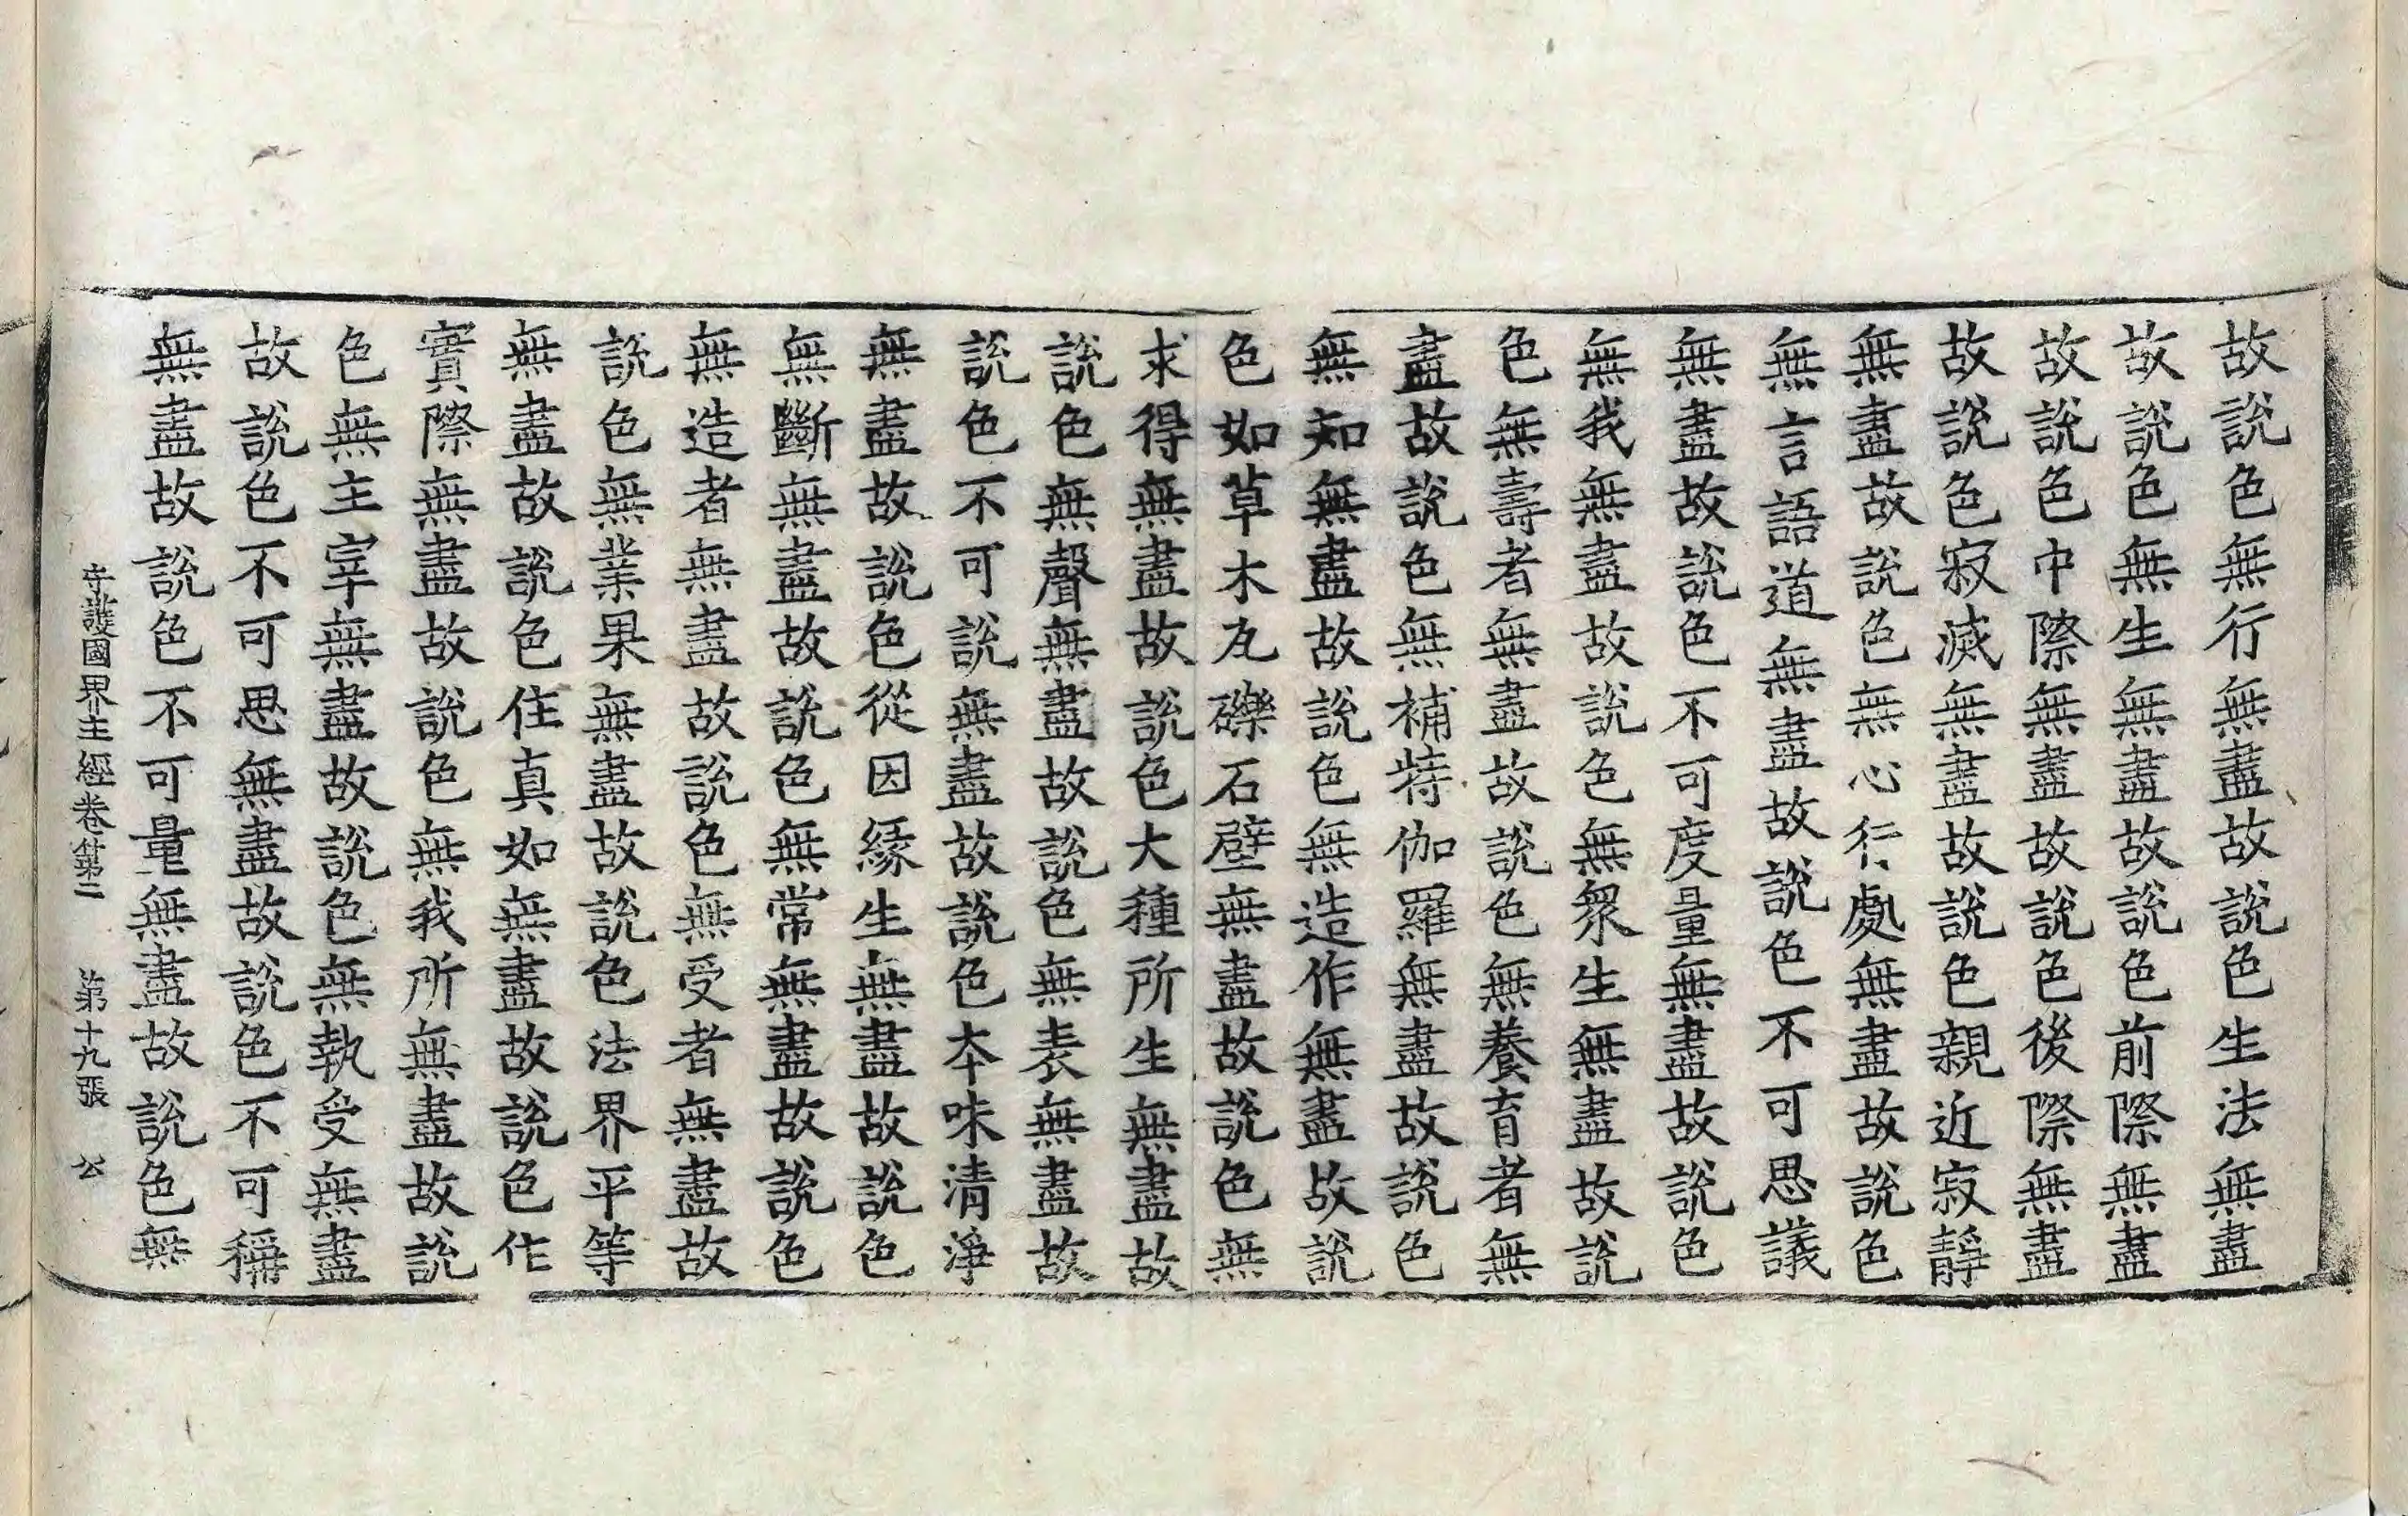 故說色無行無盡故說色生法無盡
故說色無生無盡故說色前際無盡
故說色中際無盡故說色後際無盡
故說色寂滅無盡故說色親近寂靜
無盡故說色無心行處無盡故說色
無言語道無盡故說色不可思議
無盡故說色不可度量無盡故說色
無我無盡故說色無衆生無盡故說
色無壽者無盡故說色無養育者無
盡故說色無補特伽羅無盡故說色
無知無盡故說色無造作無盡故說
色如草木瓦礫石壁無盡故說色無
求得無盡故說色大種所生無盡故
說色無聲無盡故說色無表無盡故
說色不可說無盡故說色本味清淨
無盡故說色從因緣生無盡故說色
無斷無盡故說色無常無盡故說色
無造者無盡故說色無受者無盡故
說色無業果無盡故說色法界平等
無盡故說色住真如無盡故說色作
實際無盡故說色無我所無盡故說
色無主宰無盡故說色無執受無盡
故說色不可思無盡故說色不可稱
無盡故說色不可量無盡故說色無
守護國界主經卷第二 第十九張 公